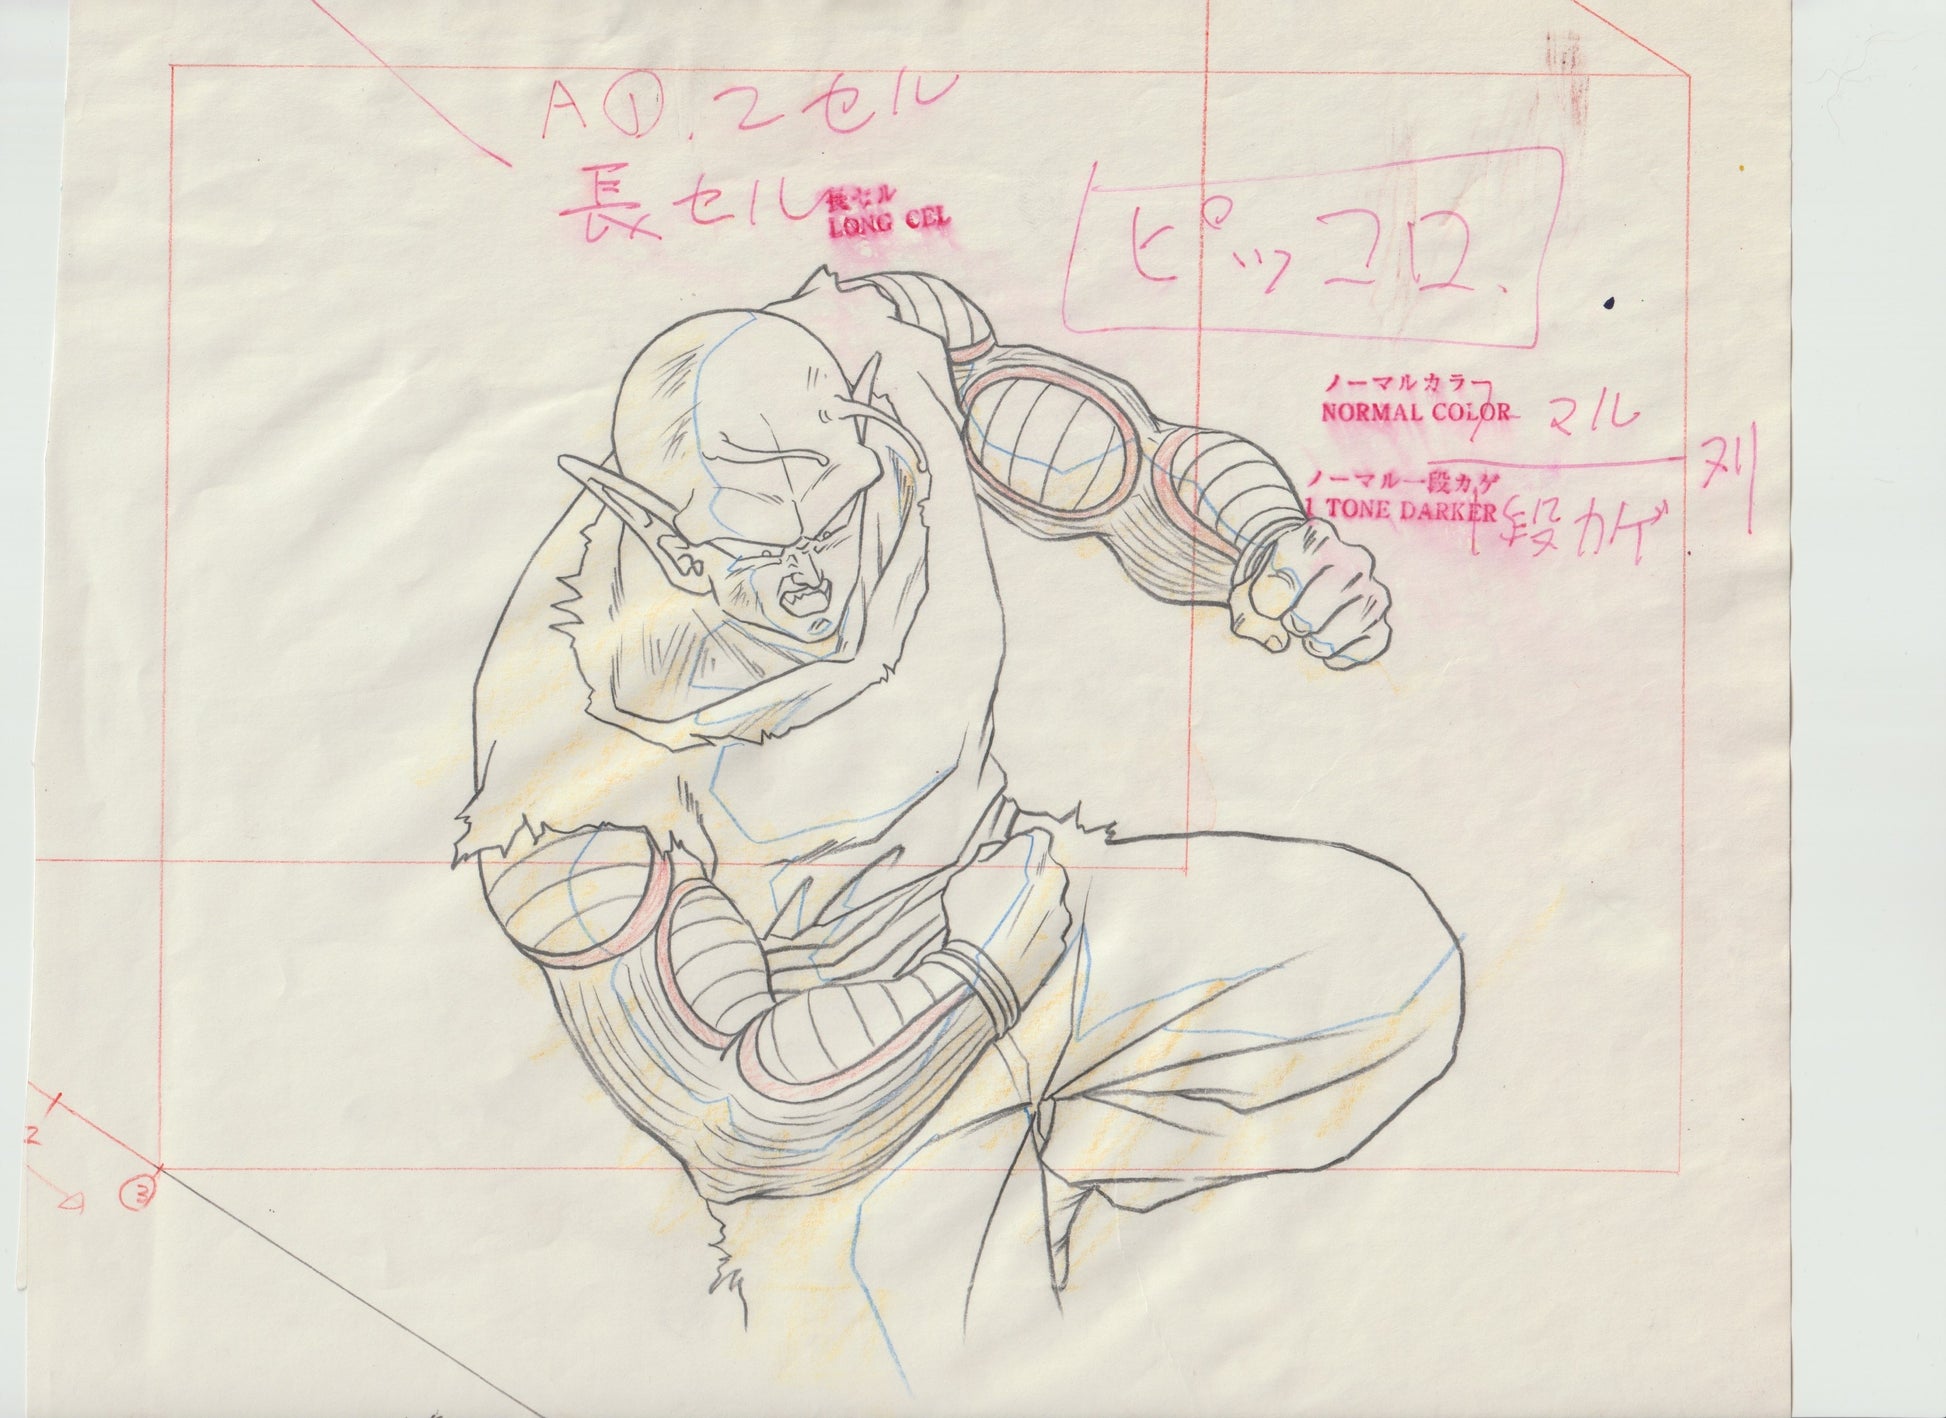 A①.2セル
長セル
長セル
LONG CEL
ピッコロ、
ノーマルカラー
NORMAL COLOR
ノーマル
ヌリ
ノーマル一段カゲ
1 TONE DARKER
1段カゲ
2
③